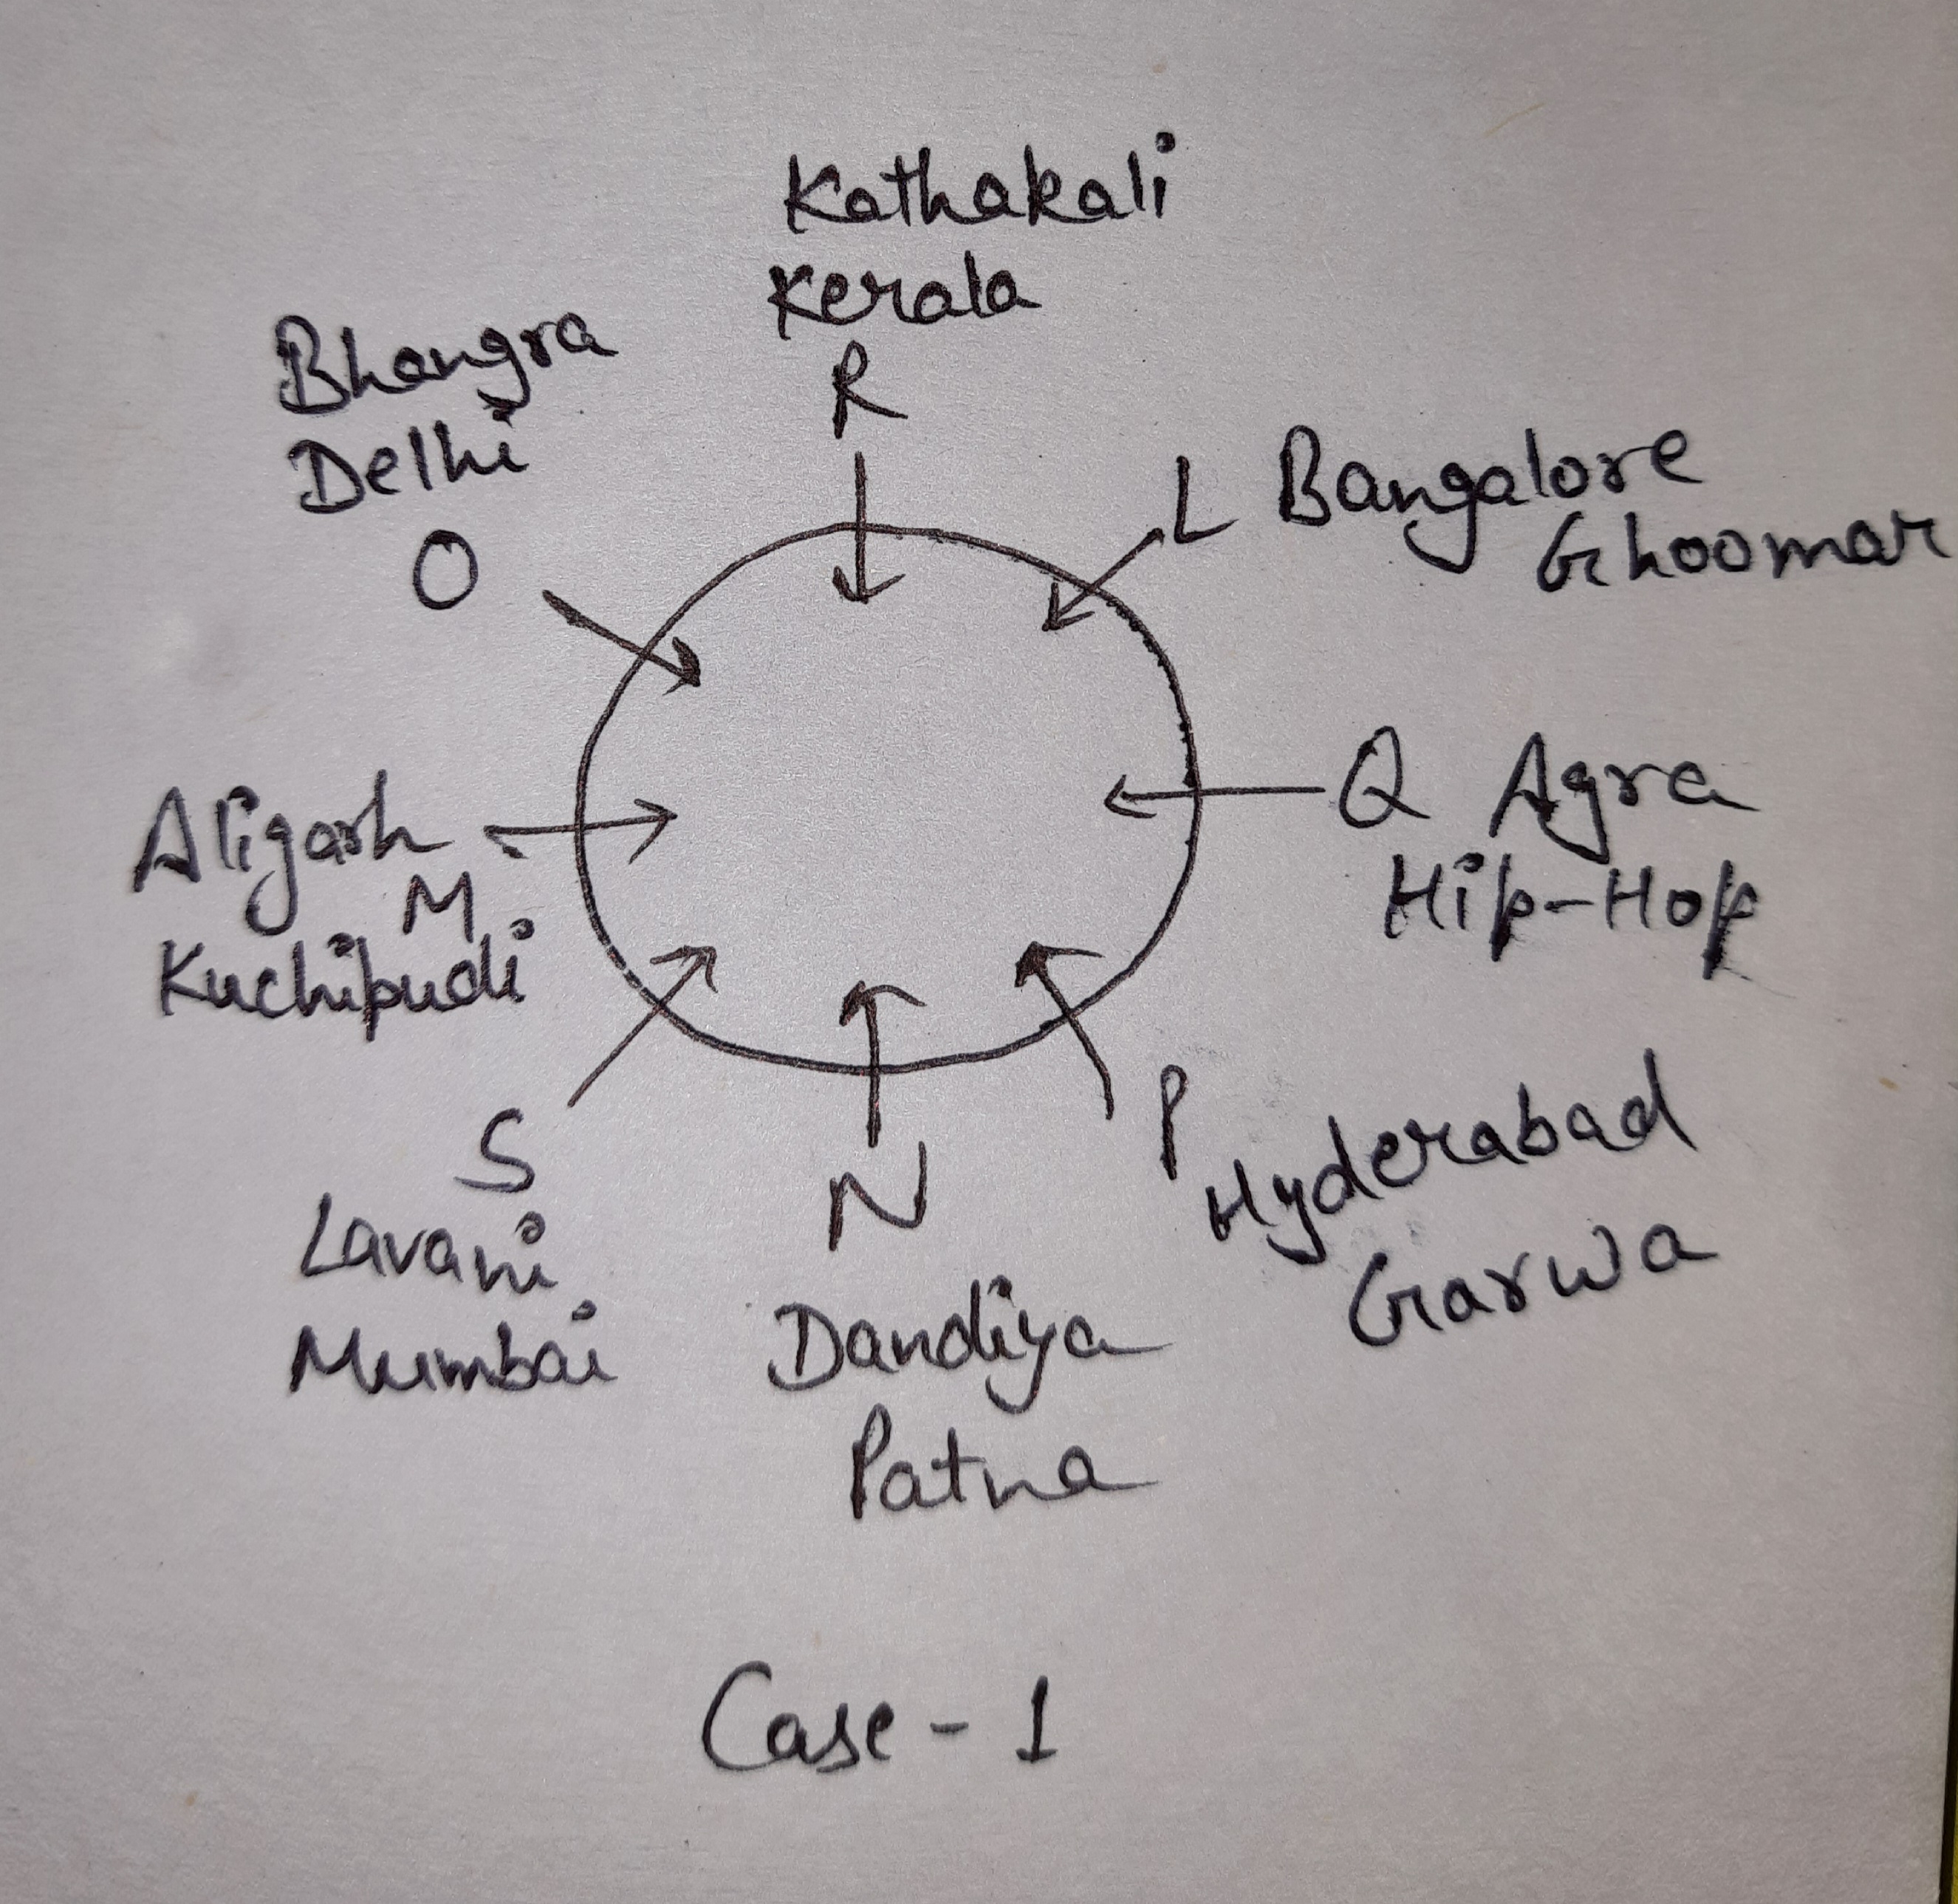 Kathakali
Kerala
R
Bhangra
Delhi
O
L Bangalore
Ghoomar
Q Agra
Hip-Hop
Aligarh
M
Kuchipudi
P
Hyderabad
Garwa
S
Lavani
Mumbai
N
Dandiya
Patna
Case - 1